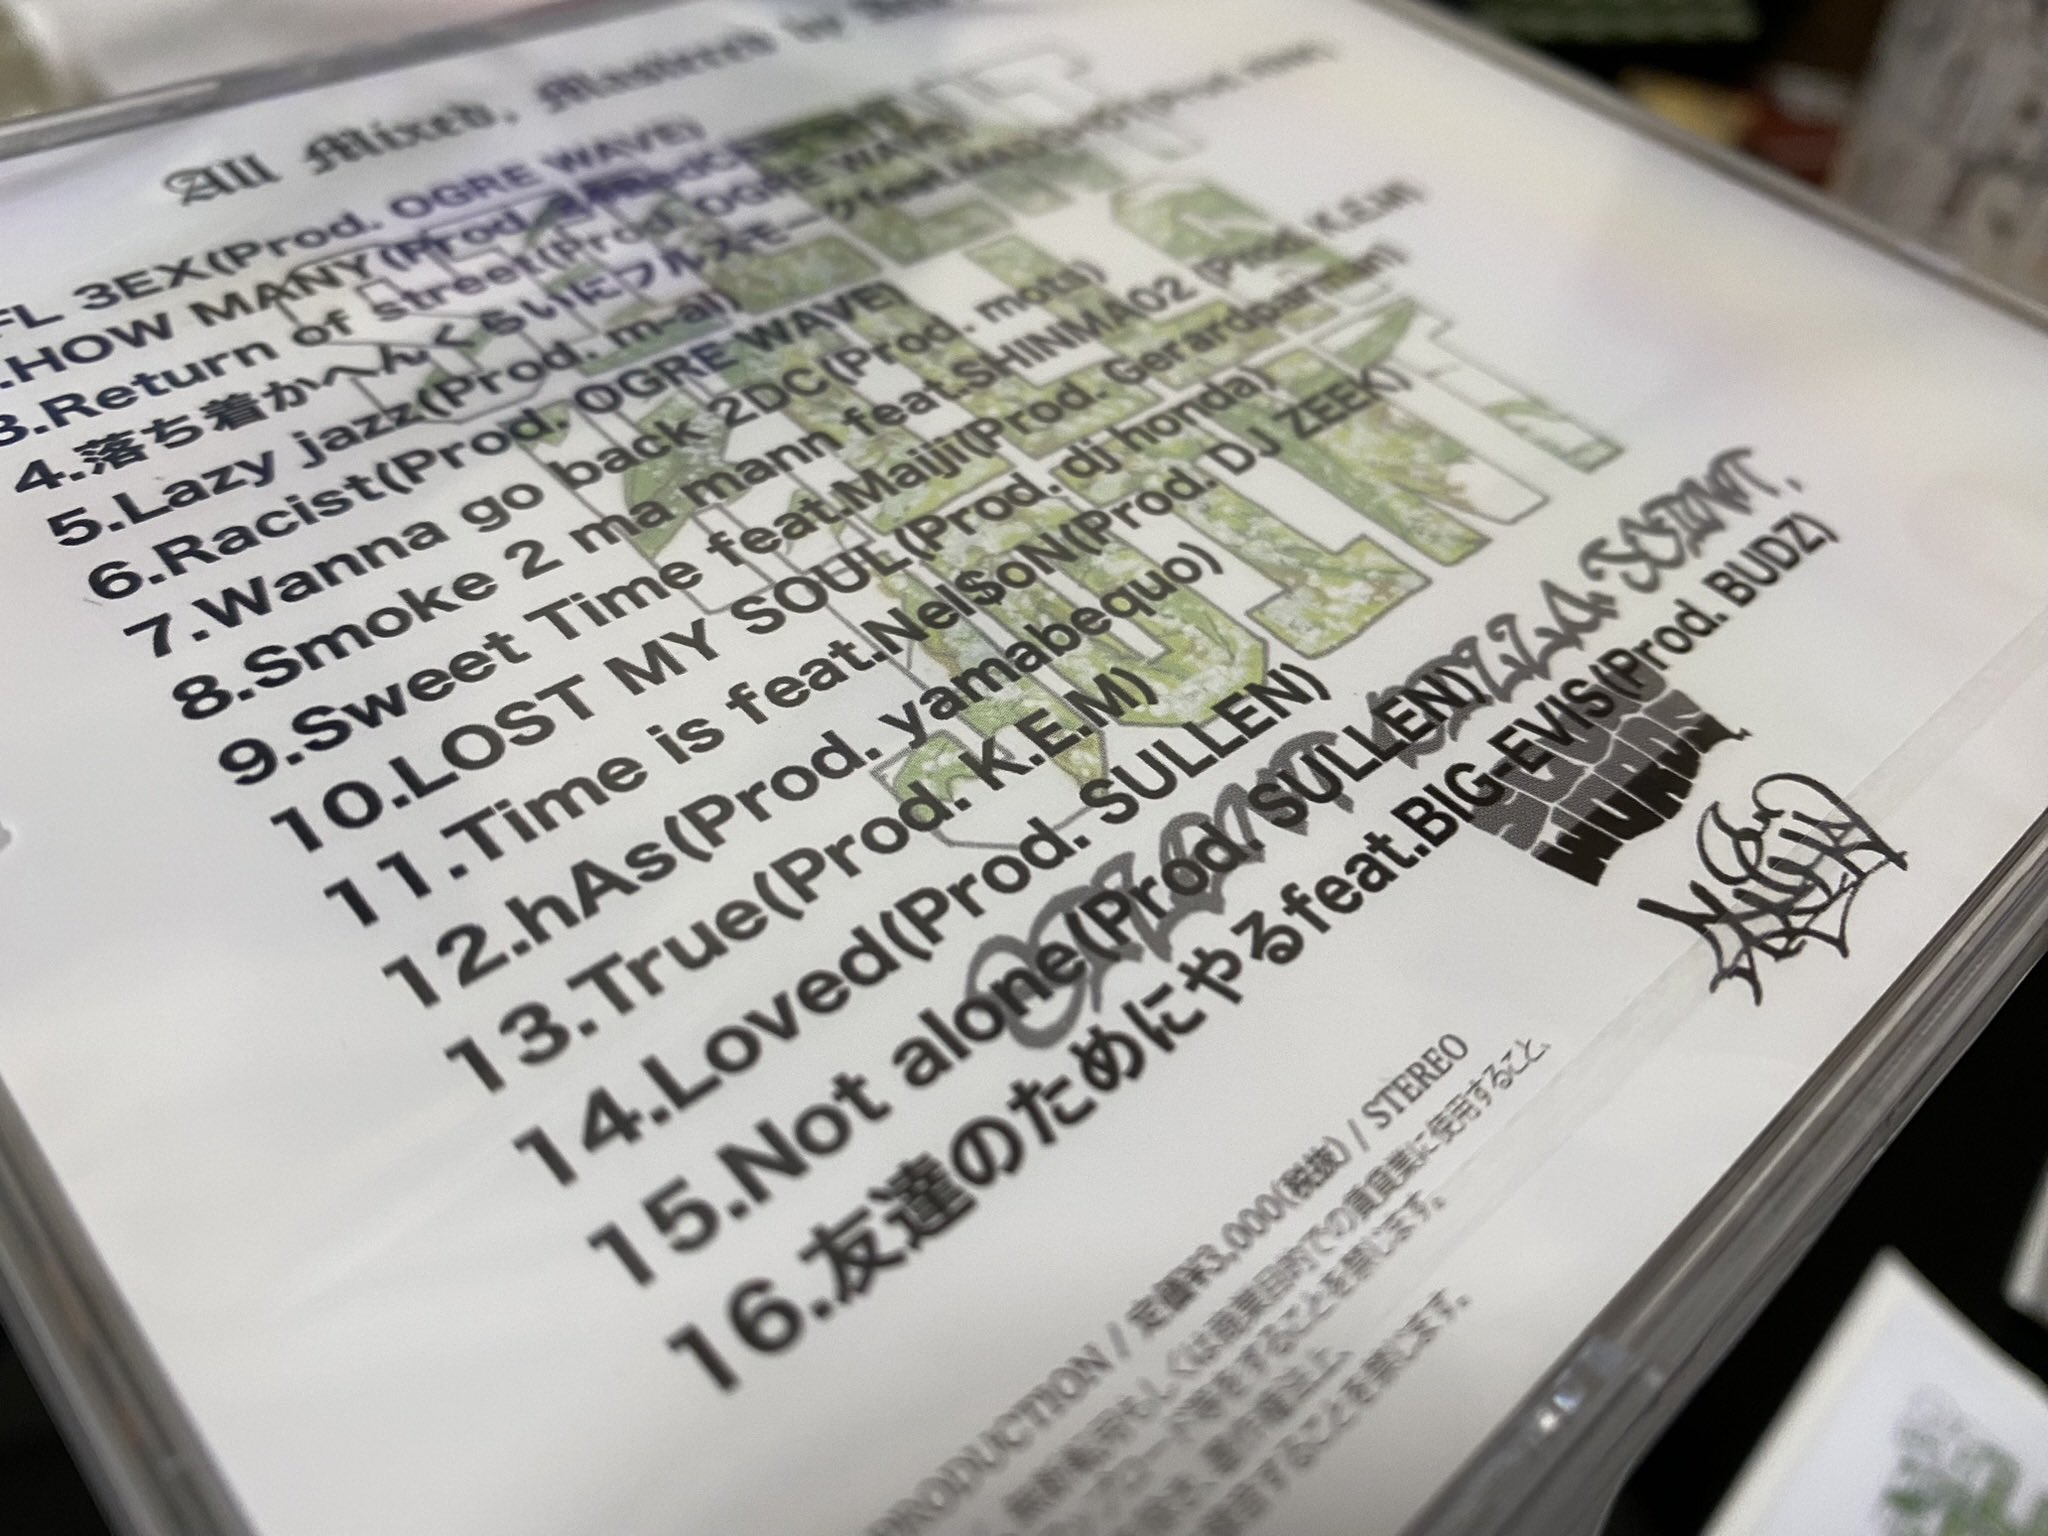 All Mixed, Mastered
FL 3EX(Prod. OGRE WAVE)
.HOW MANY(Prod.
3.Return of street(Prod. OGRE WAVE)
4.落ち着かへんくらいにフルスモーク
5.Lazy jazz(Prod. m-al)
6.Racist(Prod. OGRE WAVE)
7.Wanna go back 2DC(Prod. mots)
8.Smoke 2 ma mann feat.SHINMA02 (Prod. K.E.M)
9.Sweet Time feat.Maiji(Prod. Gerardparman)
10.LOST MY SOUL(Prod. dj honda)
11.Time is feat.Nel$oN(Prod. DJ ZEEK)
12.hAs(Prod. yamabequo)
13.True(Prod. K.E.M)
14.Loved(Prod. SULLEN)
15.Not alone(Prod. SULLEN)
16.友達のためにやるfeat.BIG-EVIS(Prod. BUDZ)
PRODUCTION / 定価¥3,000(税抜) / STEREO
無断転用もしくは商業目的での賃貸業に使用すること、
等をすることを禁じます。
著作権法上、
することを禁じます。